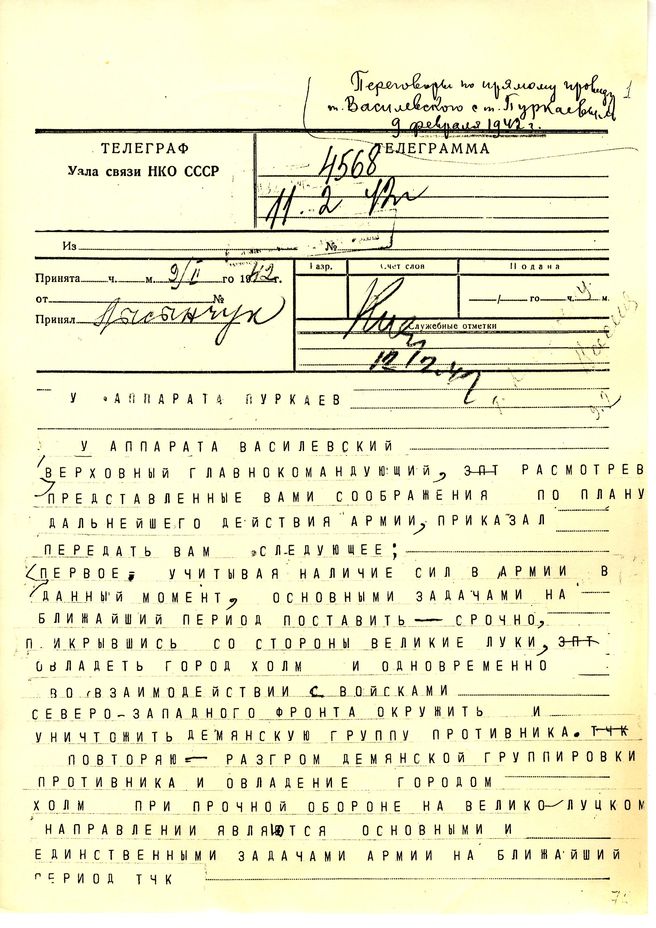 Переговоры по прямому проводу 1
т. Василевского с т. Пуркаевым
9 февраля 1942 г.
ТЕЛЕГРАФ
Узла связи НКО СССР
ТЕЛЕГРАММА
4568
11.2 42г
Из №
Принята ч. м. 9/II го 1942г.
от №
Принял
Разр.
Счет слов
Подана
/ го ч. м.
Служебные отметки
У АППАРАТА ПУРКАЕВ
У АППАРАТА ВАСИЛЕВСКИЙ
ВЕРХОВНЫЙ ГЛАВНОКОМАНДУЮЩИЙ, ЗПТ РАСМОТРЕВ
ПРЕДСТАВЛЕННЫЕ ВАМИ СООБРАЖЕНИЯ ПО ПЛАНУ
ДАЛЬНЕЙШЕГО ДЕЙСТВИЯ АРМИИ, ПРИКАЗАЛ
ПЕРЕДАТЬ ВАМ СЛЕДУЮЩЕЕ;
ПЕРВОЕ, УЧИТЫВАЯ НАЛИЧИЕ СИЛ В АРМИИ В
ДАННЫЙ МОМЕНТ, ОСНОВНЫМИ ЗАДАЧАМИ НА
БЛИЖАЙШИЙ ПЕРИОД ПОСТАВИТЬ — СРОЧНО,
П.ИКРЫВШИСЬ СО СТОРОНЫ ВЕЛИКИЕ ЛУКИ, ЗПТ
ОВЛАДЕТЬ ГОРОД ХОЛМ И ОДНОВРЕМЕННО
ВО ВЗАИМОДЕЙСТВИИ С ВОЙСКАМИ
СЕВЕРО-ЗАПАДНОГО ФРОНТА ОКРУЖИТЬ И
УНИЧТОЖИТЬ ДЕМЯНСКУЮ ГРУППУ ПРОТИВНИКА. ТЧК
ПОВТОРЯЮ — РАЗГРОМ ДЕМЯНСКОЙ ГРУППИРОВКИ
ПРОТИВНИКА И ОВЛАДЕНИЕ ГОРОДОМ
ХОЛМ ПРИ ПРОЧНОЙ ОБОРОНЕ НА ВЕЛИКО-ЛУЦКОМ
НАПРАВЛЕНИИ ЯВЛЯЮТСЯ ОСНОВНЫМИ И
ЕДИНСТВЕННЫМИ ЗАДАЧАМИ АРМИИ НА БЛИЖАЙШИЙ
ПЕРИОД ТЧК